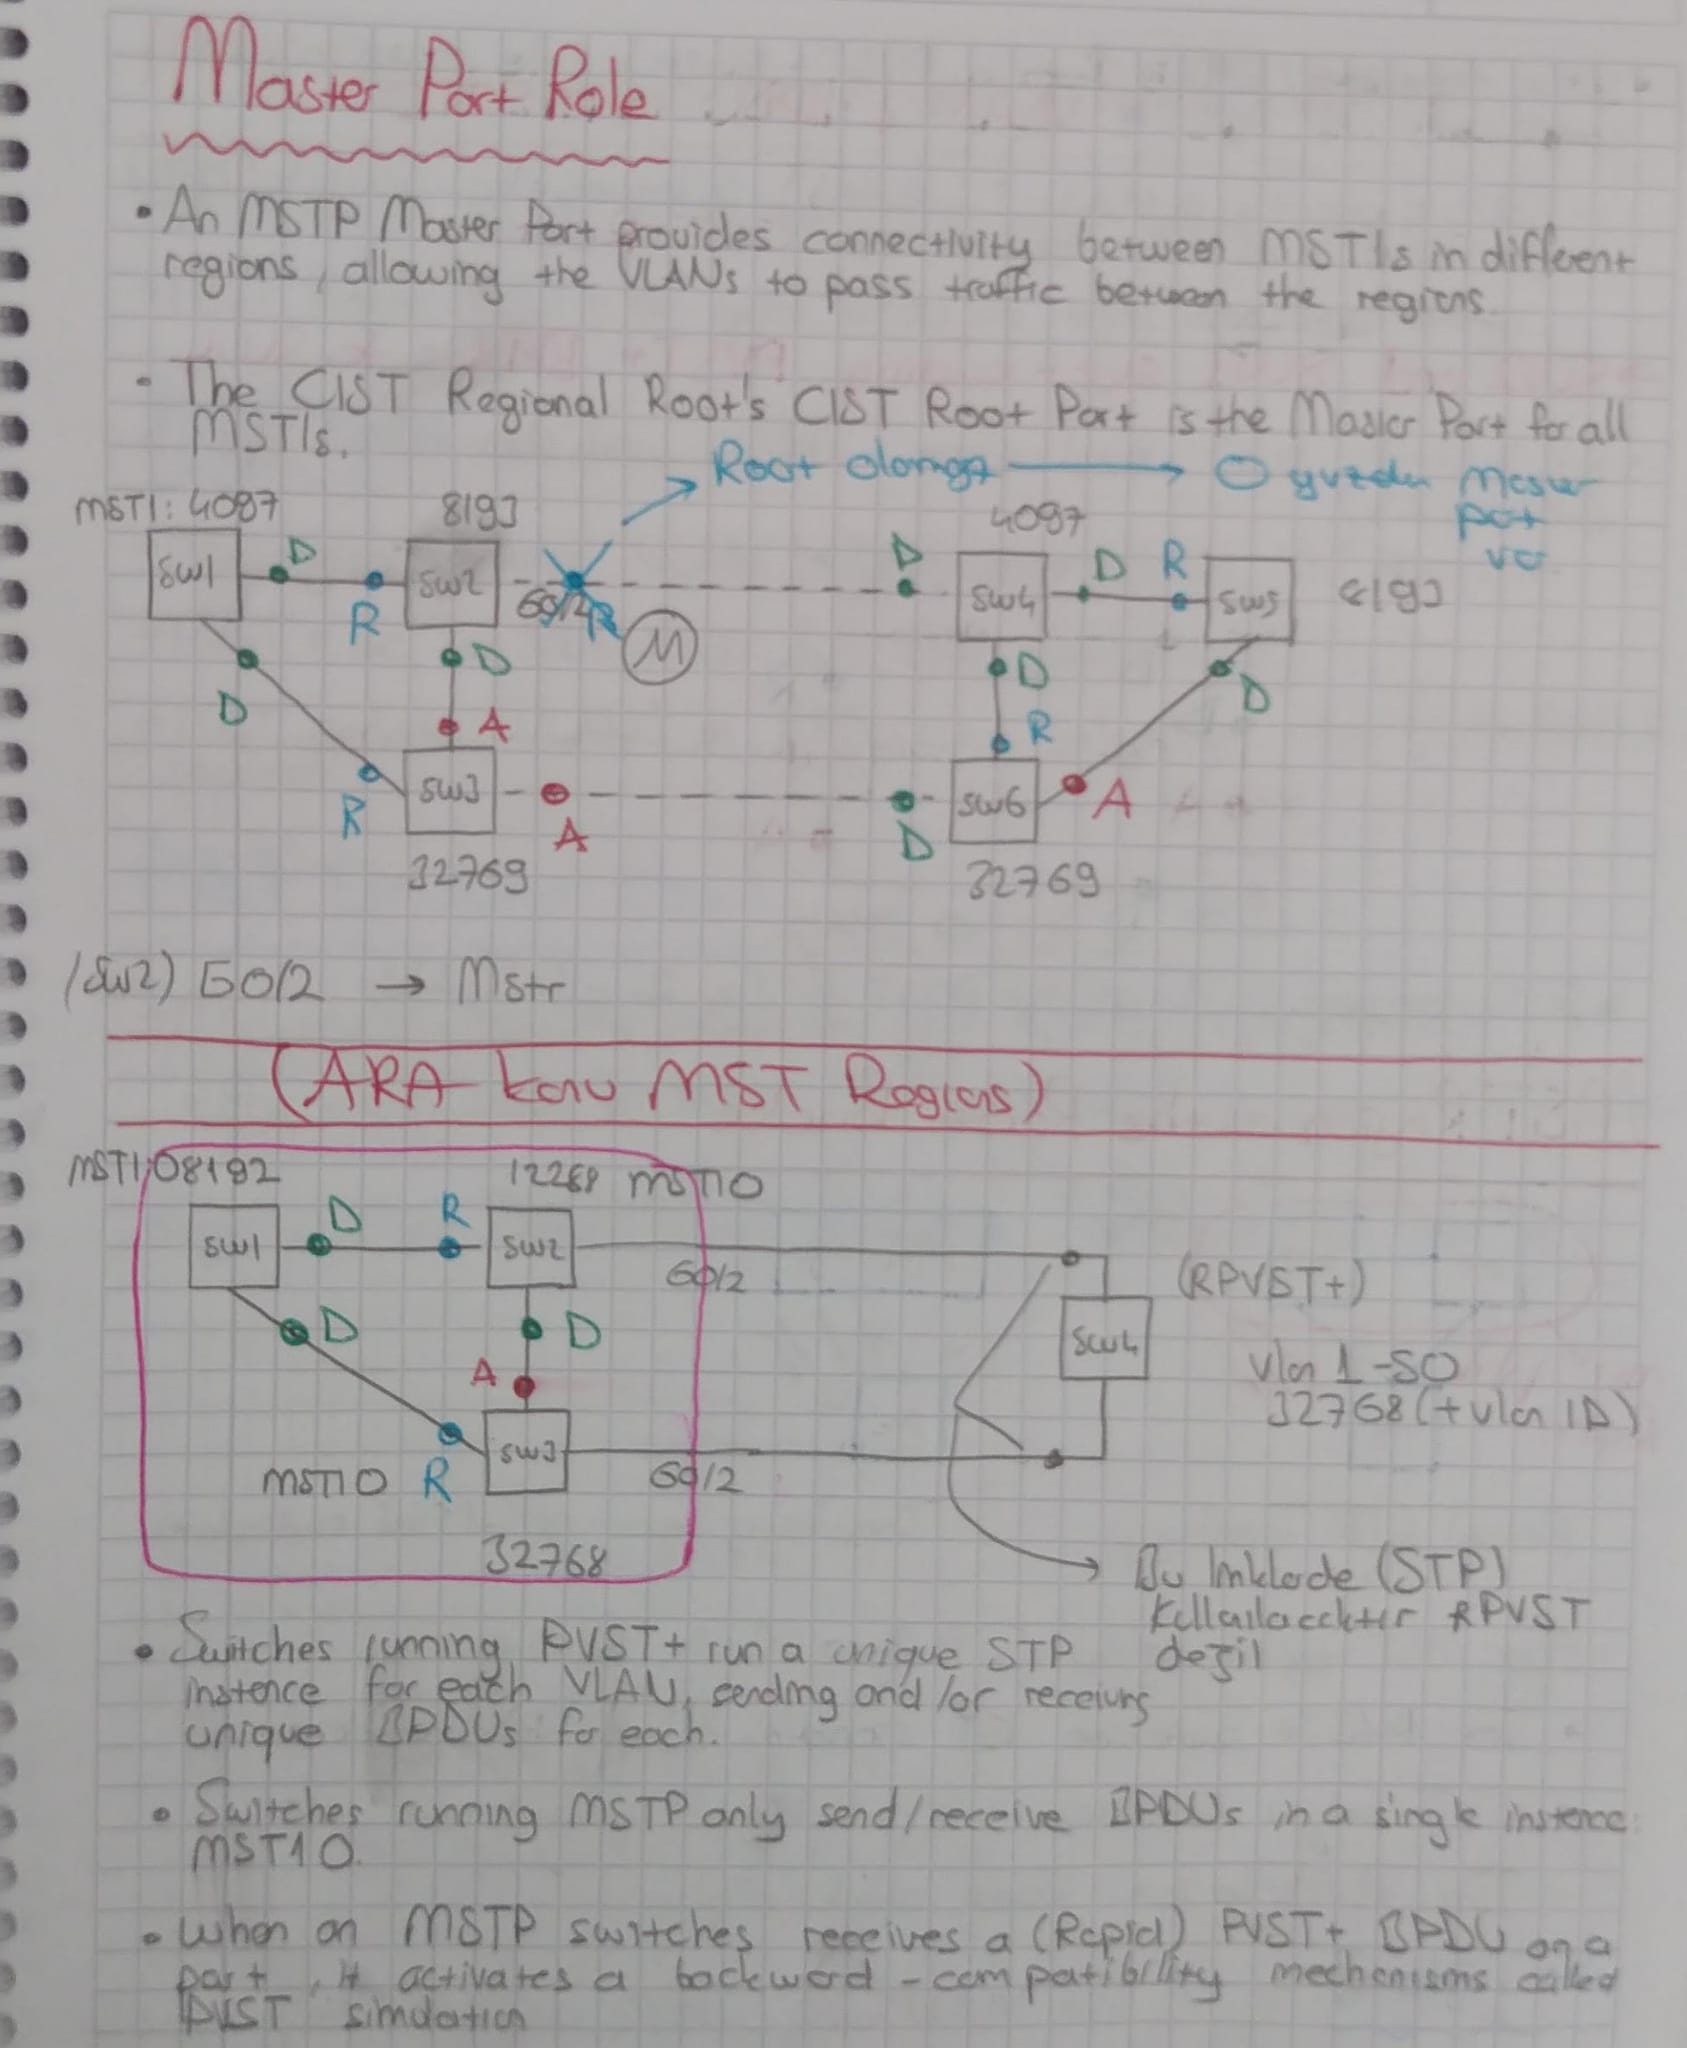 Master Port Role
• An MSTP Master Port provides connectivity between MSTIs in different
regions, allowing the VLANs to pass traffic between the regions
• The CIST Regional Root's CIST Root Port is the Master Port for all
MSTIs.
Root olamaz → O yuzden Master
port
var
MSTI: 4097
8193
4097
8193
SW1
D
R
SW2
G0/2
M
D
SW4
D
R
SW5
D
R
D
A
SW3
A
D
R
D
SW6
A
D
32769
32769
(SW2) G0/2 → Mstr
(ARA konu MST Regions)
MSTI:0 8192
12288 MSTI0
SW1
D
R
SW2
G0/2
(RPVST+)
SW4
D
D
A
Vlan 1-50
32768 (+vlan ID)
SW3
MSTI0 R
G0/2
32768
Bu linklerde (STP)
kullanılacaktır RPVST
değil
• Switches running PVST+ run a unique STP
instence for each VLAN, sending and/or receivng
unique BPDUs for each.
• Switches running MSTP only send/receive BPDUs in a single instence:
MST10.
• When an MSTP switches receives a (Rapid) PVST+ BPDU on a
port, it activates a backword-compatibility mechenisms called
PVST simulation